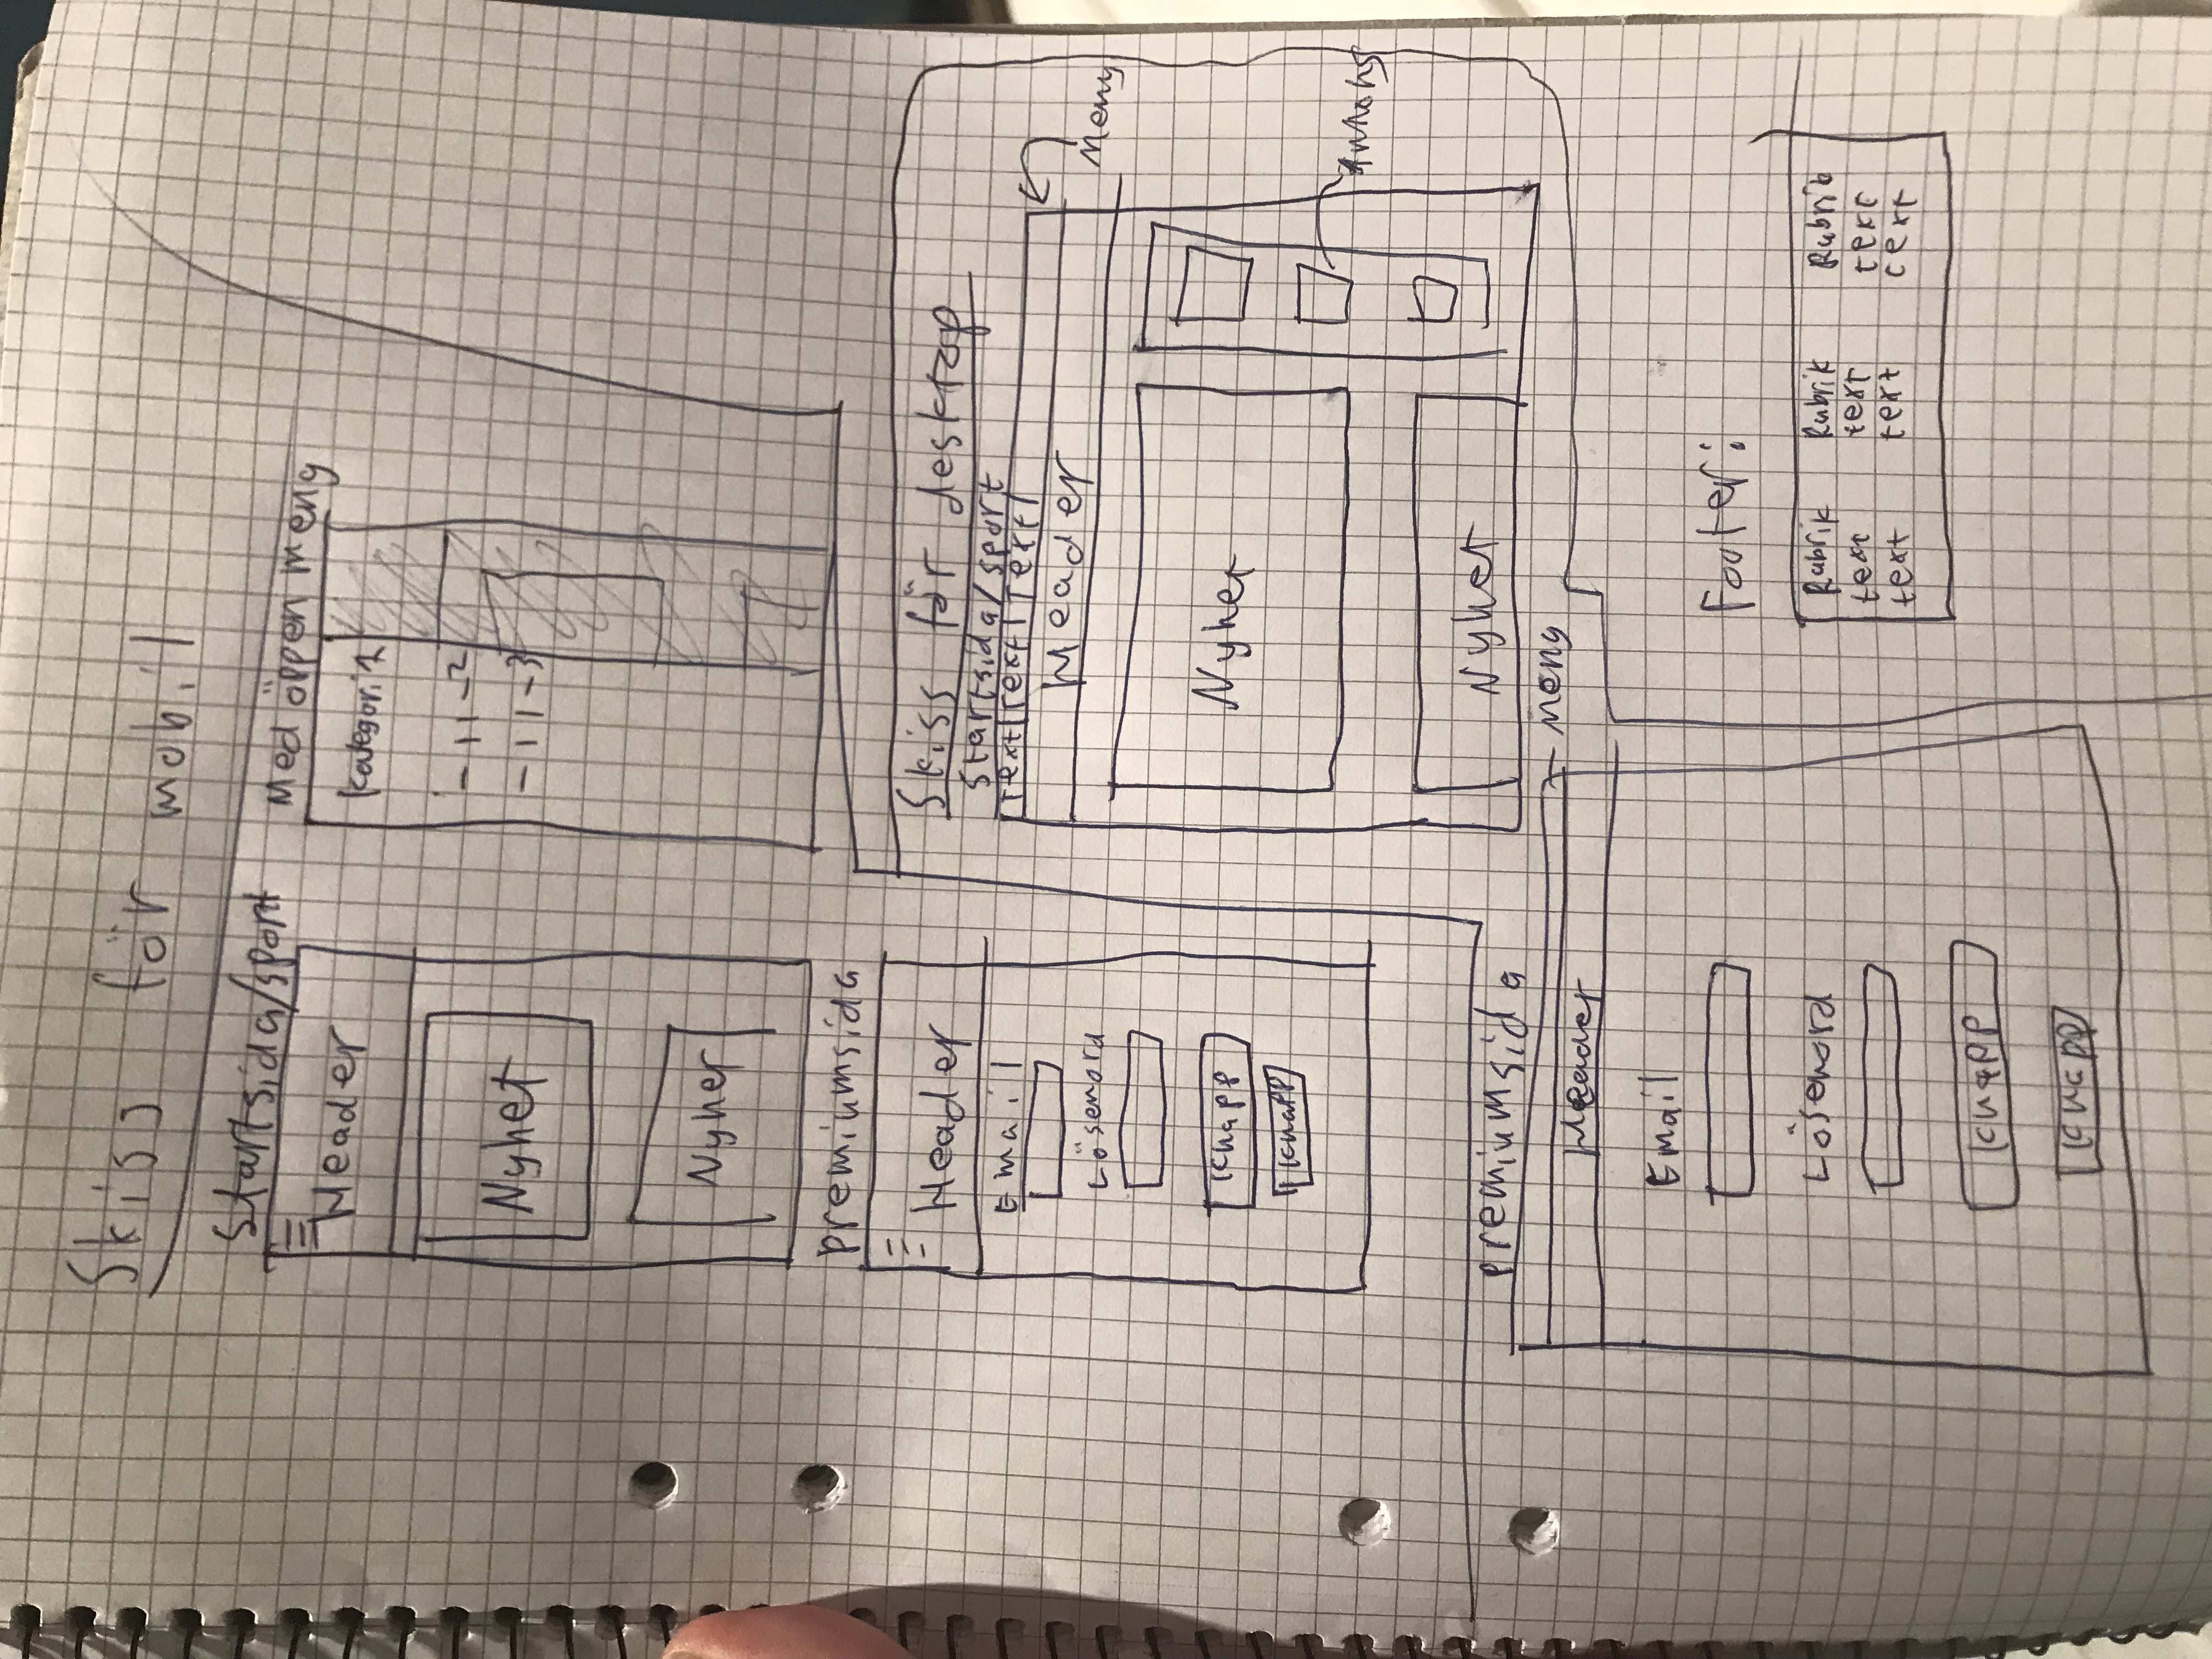 Skiss för mobil
Startsida/sport
Header
Nyhet
Nyhet
Med öppen meny
Kategori 1
-11-2
-11-3
premiumsida
Header
Email
Lösenord
Knapp
Knapp
Skiss för desktop
Startsida/sport
Text|Text|Text|
Meny
Header
Nyhet
Annons
Nyhet
premiumsida
Meny
Header
Email
Lösenord
Knapp
Knapp
Footer:
Rubrik Rubrik Rubrik
text text text
text text text